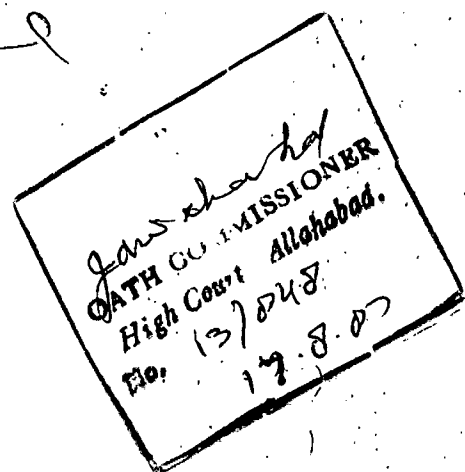 OATH COMMISSIONER
High Court Allahabad.
No. 13/848
17.8.87